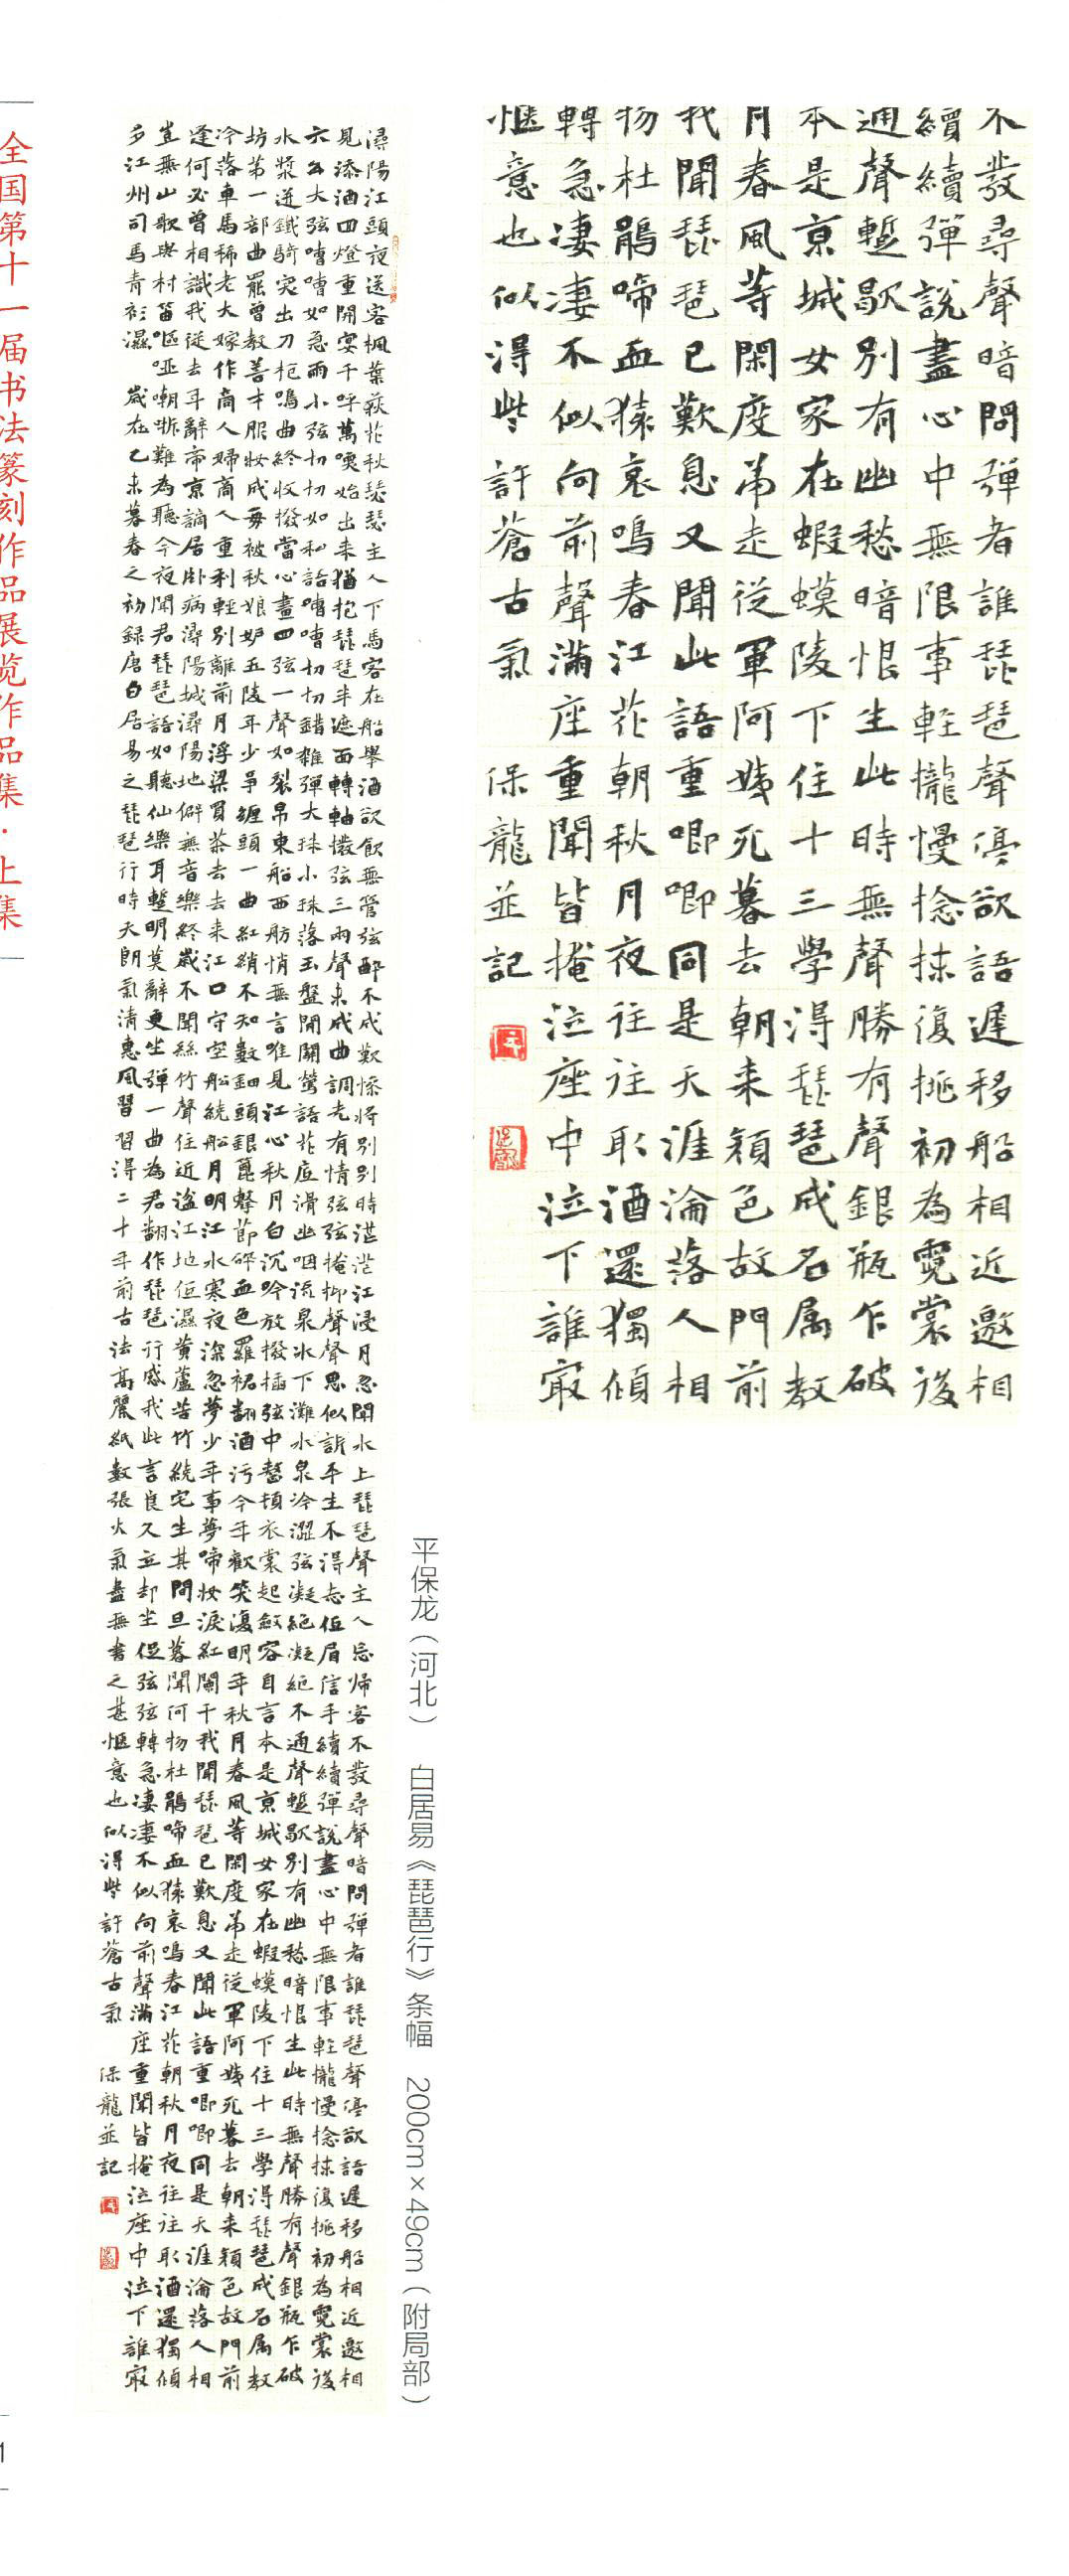 不發尋聲暗問彈者誰琵琶聲停欲語遲移船相近邀相
續續彈說盡心中無限事輕攏慢捻抹復挑初為霓裳後
通聲暫歇別有幽愁暗恨生此時無聲勝有聲銀瓶乍破
本是京城女家在蝦蟆陵下住十三學得琵琶成名属教
月春風等閑度弟走從軍阿姨死暮去朝来顏色故門前
我聞琵琶已歎息又聞此語重唧唧同是天涯淪落人相
物杜鵑啼血猿哀鳴春江花朝秋月夜往往取酒還獨傾
轉急凄凄不似向前聲滿座重聞皆掩泣座中泣下誰最
愜意也似得些許蒼古氣 保龍並記
平保龙（河北） 白居易《琵琶行》条幅 200cm×49cm（附局部）
潯陽江頭夜送客楓葉荻花秋瑟瑟主人下馬客在船舉酒欲飲無管弦醉不成歡慘將別別時茫茫江浸月忽聞水上琵琶聲主人忘歸客不發尋聲暗問彈者誰琵琶聲停欲語遲移船相近邀相
見添酒回燈重開宴千呼萬喚始出来猶抱琵琶半遮面轉軸撥弦三兩聲未成曲調先有情弦弦掩抑聲聲思似訴平生不得志低眉信手續續彈說盡心中無限事輕攏慢捻抹復挑初為霓裳後
六幺大弦嘈嘈如急雨小弦切切如私語嘈嘈切切錯雜彈大珠小珠落玉盤間關鶯語花底滑幽咽流泉冰下灘水泉冷澀弦凝絕凝絕不通聲暫歇別有幽愁暗恨生此時無聲勝有聲銀瓶乍破
水漿迸鐵騎突出刀槍鳴曲終收撥當心畫四弦一聲如裂帛東船西舫悄無言唯見江心秋月白沉吟放撥插弦中整頓衣裳起斂容自言本是京城女家在蝦蟆陵下住十三學得琵琶成名属教
坊第一部曲罷曾教善才服妝成每被秋娘妒五陵年少爭纏頭一曲紅綃不知數鈿頭銀篦擊節碎血色羅裙翻酒污今年歡笑復明年秋月春風等閑度弟走從軍阿姨死暮去朝来顏色故門前
冷落車馬稀老大嫁作商人婦商人重利輕別離前月浮梁買茶去去来江口守空船繞船月明江水寒夜深忽夢少年事夢啼妝淚紅闌干我聞琵琶已歎息又聞此語重唧唧同是天涯淪落人相
逢何必曾相識我從去年辭帝京謫居卧病潯陽城潯陽地僻無音樂終歲不聞絲竹聲住近湓江地低濕黃蘆苦竹繞宅生其間旦暮聞何物杜鵑啼血猿哀鳴春江花朝秋月夜往往取酒還獨傾
豈無山歌與村笛嘔啞嘲哳難為聽今夜聞君琵琶語如聽仙樂耳暫明莫辭更坐彈一曲為君翻作琵琶行感我此言良久立却坐促弦弦轉急凄凄不似向前聲滿座重聞皆掩泣座中泣下誰最
多江州司馬青衫濕 歲在乙未暮春之初録唐白居易之琵琶行時天朗氣清惠風習習得二十年前古法高麗紙數張火氣盡無書之甚愜意也似得些許蒼古氣 保龍並記
全国第十一届书法篆刻作品展览作品集·上集